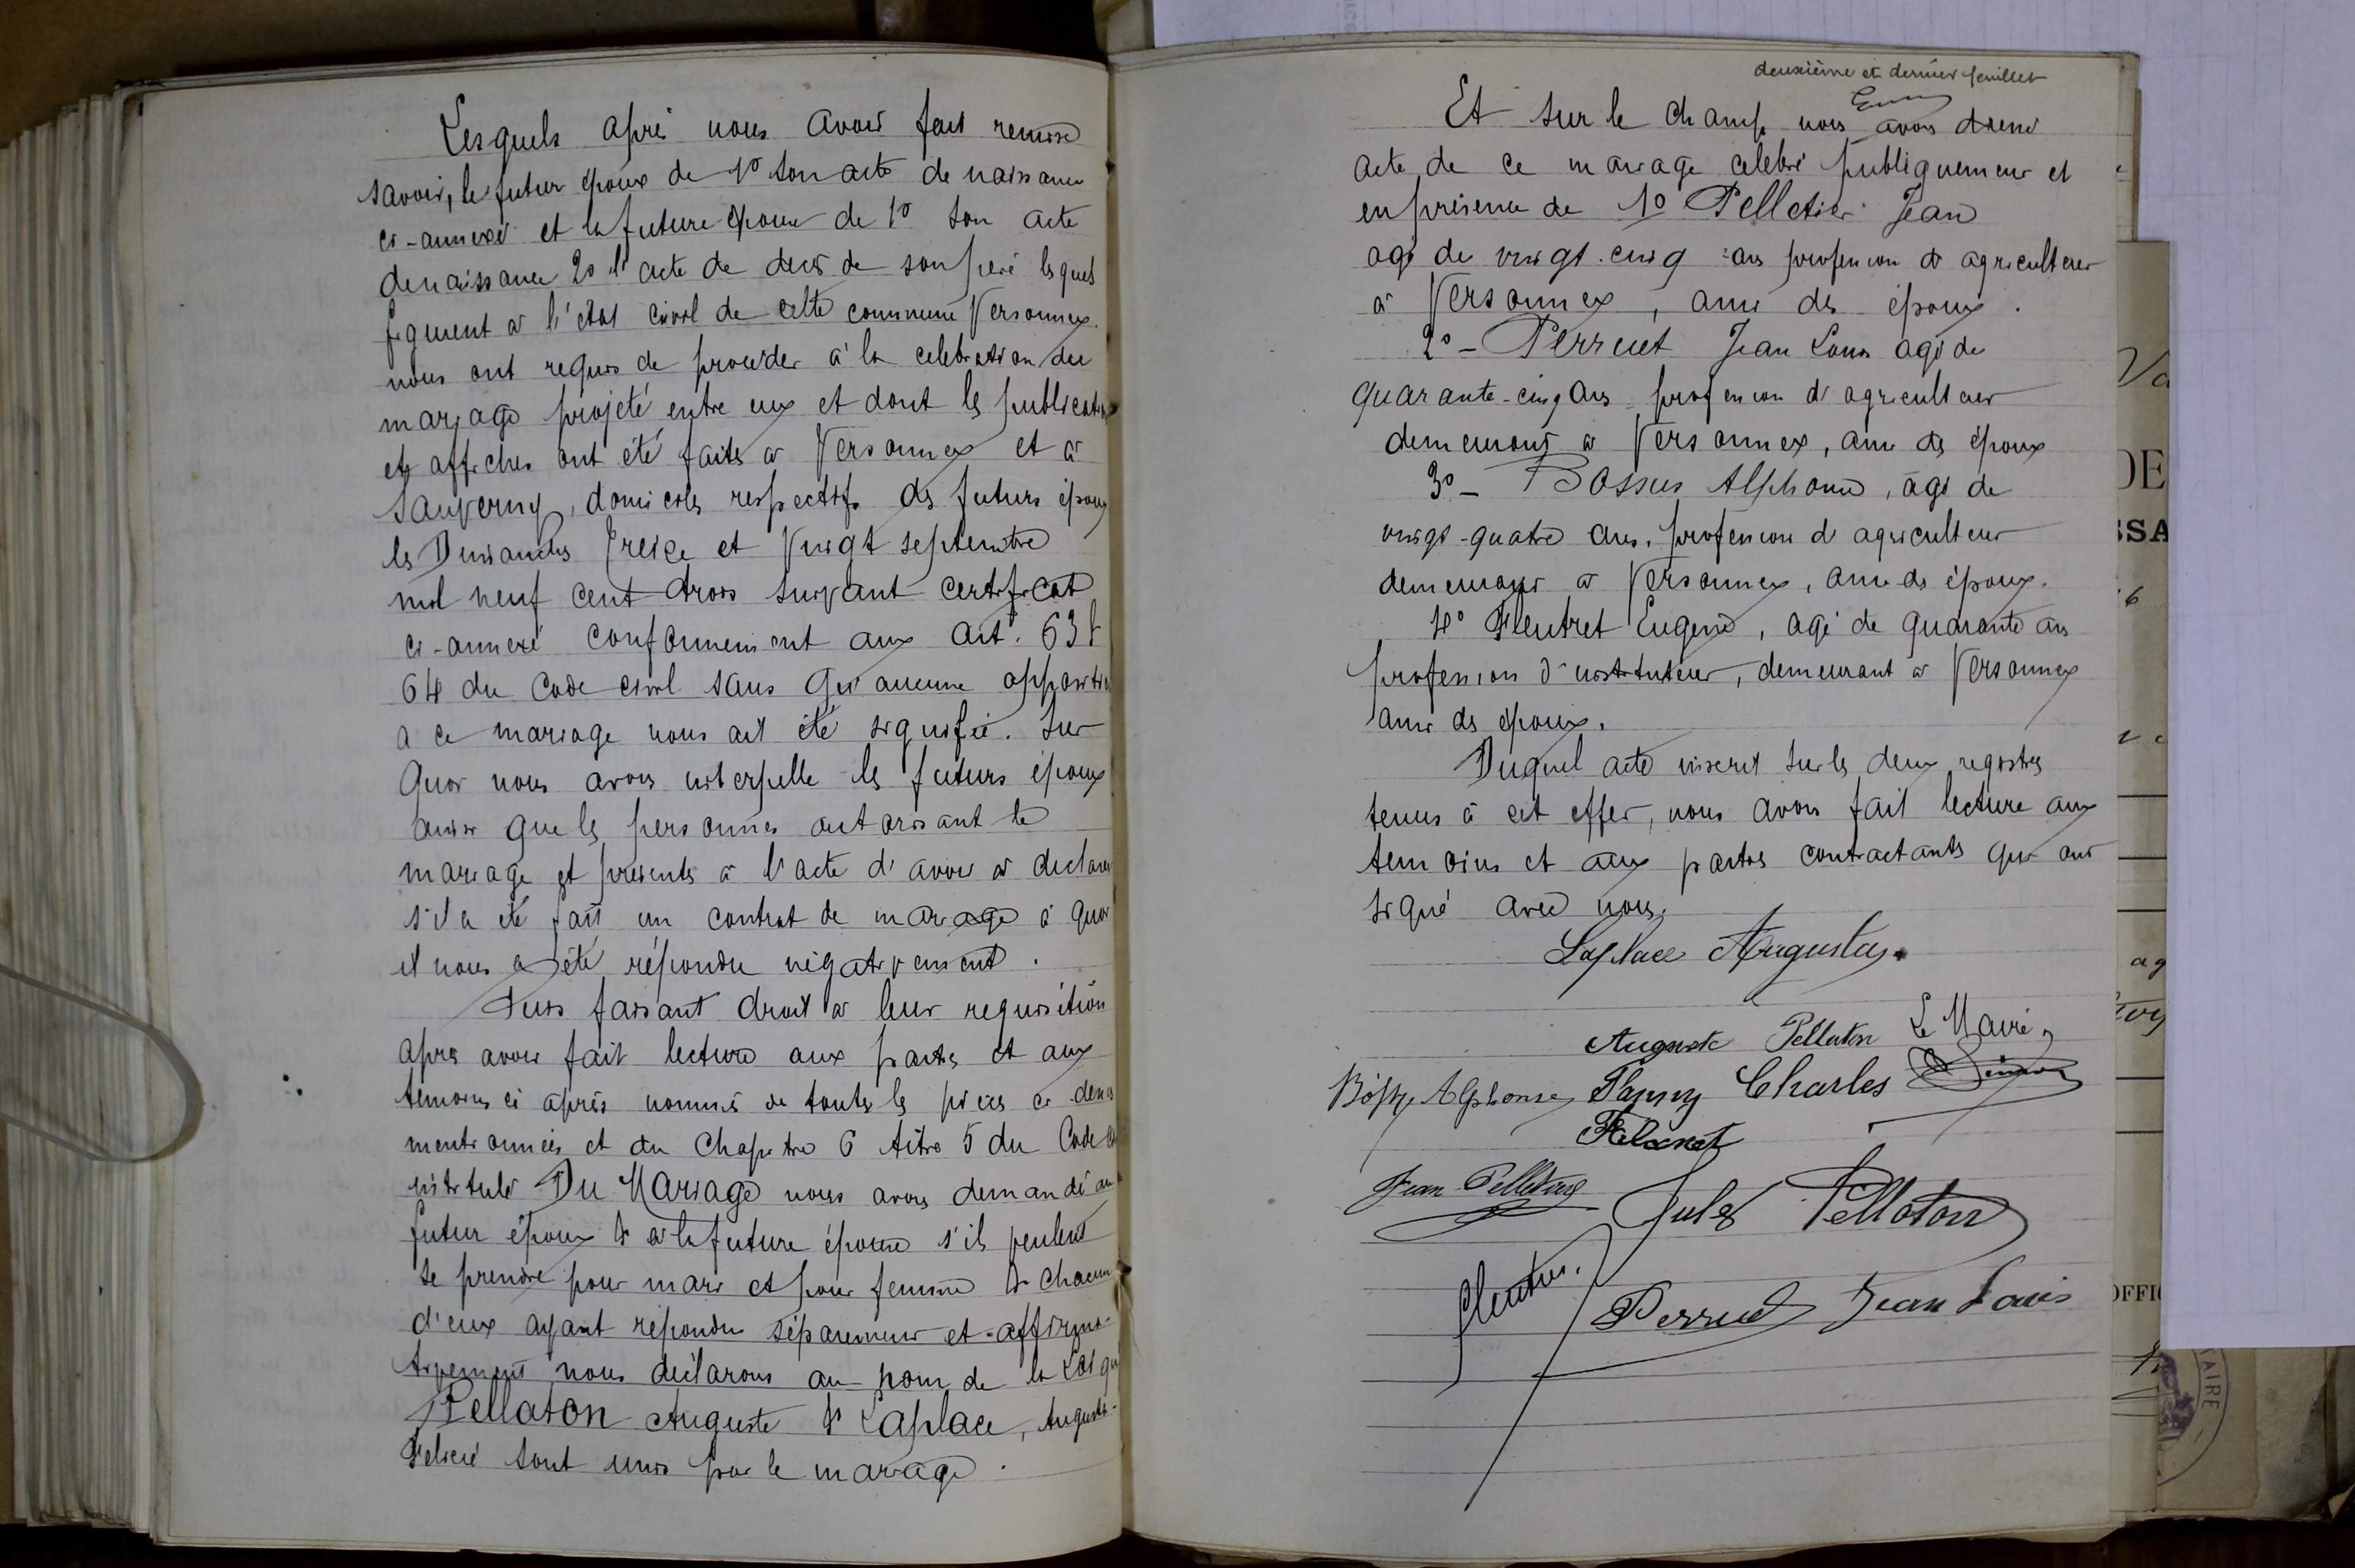 Lesquels après nous avoir fait remise
savoir, le futur époux de 1º son acte de naissance
ci-annexé et la future épouse de 1º son acte
de naissance 2º l'acte de décès de son père lesquels
figurent à l'état civil de cette commune Versonnex.
nous ont requis de procéder à la celebration du
mariage projeté entre eux et dont les publications
et affiches ont été faites à Versonnex et à
Sauverny, domiciles respectifs des futurs époux
les Dimanches Treize et Vingt septembre
mil neuf cent trois suivant certificat
ci-annexé conformement aux art. 63 &
64 du Code civil sans qu'aucune opposition
à ce mariage nous ait été signifiée. Sur
quoi nous avons interpellé les futurs époux
ainsi que les personnes autorisant le
mariage et présents à l'acte d'avoir à déclarer
s'il a été fait un contrat de mariage à quoi
il nous a été répondu négativement.
Puis faisant droit à leur requisition
après avoir fait lecture aux parties et aux
témoins ci après nommés de toutes les pièces ci-dessus
mentionnées et du Chapitre 6 titre 5 du Code
intitulé Du Mariage nous avons demandé au
futur époux & à la future épouse s'ils veulent
se prendre pour mari et pour femme & chacun
d'eux ayant répondu séparement et affirma-
tivement nous déclarons au nom de la Loi que
Pellaton Auguste & Laplace, Augusta-
Felicie sont unis par le mariage.
deuxième et dernier feuillet
Et sur le champ nous avons dressé
acte de ce mariage celebré publiquement et
en présence de 1º Pelletier Jean
agé de vingt-cinq ans profession d'agriculteur
à Versonnex, ami des époux.
2º - Perruet Jean Louis agé de
quarante-cinq ans profession d'agriculteur
demeurant à Versonnex, ami des époux
3º - Bossus Alphonse, agé de
vingt-quatre ans, profession d'agriculteur
demeurant à Versonnex, ami des époux.
4º Fleutret Eugène, agé de quarante ans
profession d'instituteur, demeurant à Versonnex
ami des époux.
Duquel acte inscrit sur les deux registres
tenus à cet effet, nous avons fait lecture aux
temoins et aux parties contractants qui ont
signé avec nous.
Laplace Augusta
Auguste Pellaton Le Maire,
Alphonse Charles
Jean Pelletier Jules Pellaton
Perruet Jean Louis